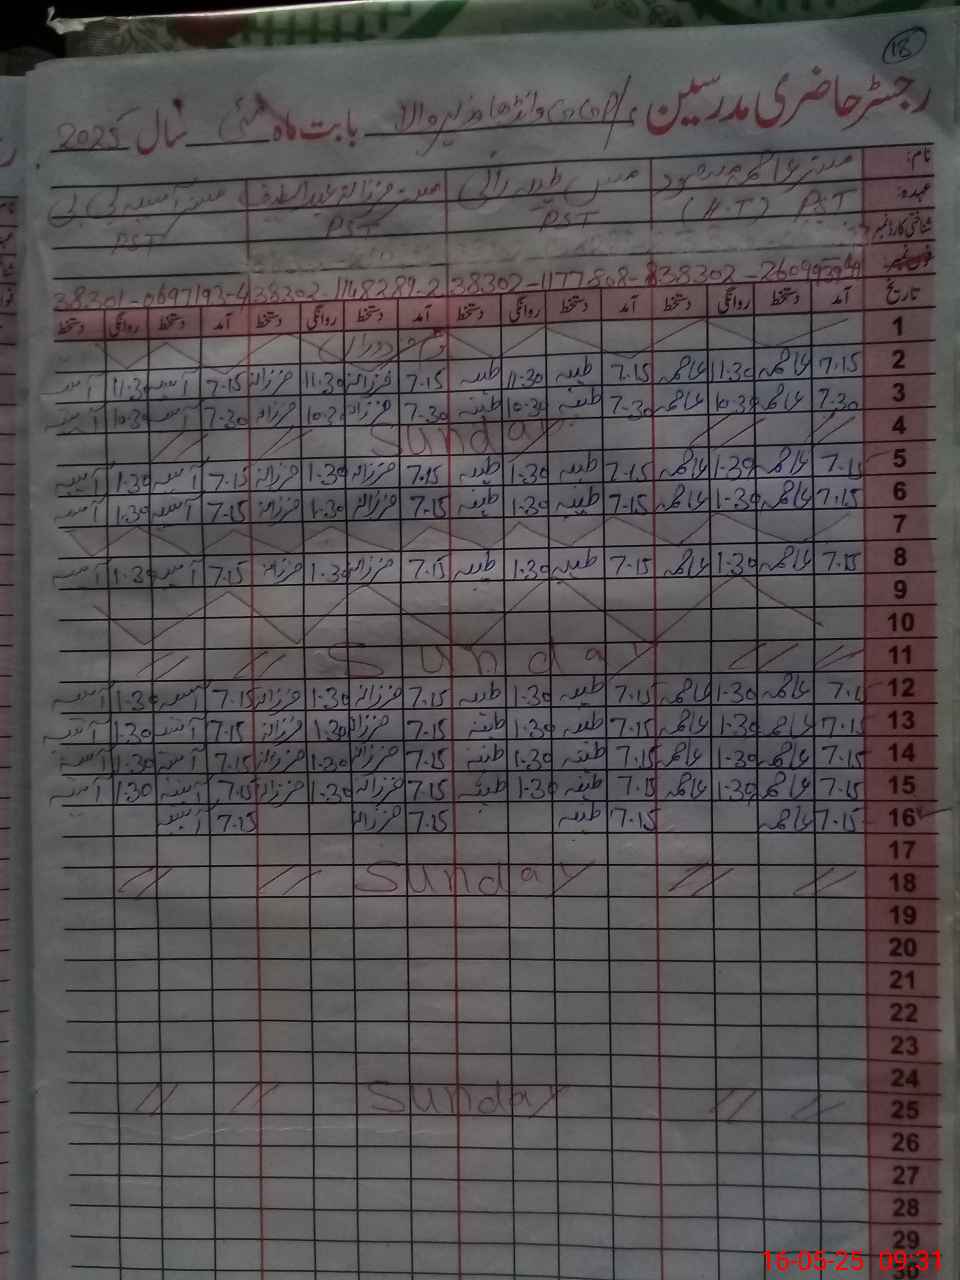 18
رجسٹر حاضری مدرسین بابت ماہ مئی سال 2025
نام: مسز عاصمہ مسعود مس طیبہ رانی مسز فرزانہ مسز آسیہ بی بی
عہدہ: PST (H.T) PST PST PST
شناختی کارڈ نمبر
38302-1177808-8 38302-1148289-2 38301-0697193-4
تاریخ آمد دستخط روانگی دستخط آمد دستخط روانگی دستخط آمد دستخط روانگی دستخط آمد دستخط روانگی دستخط
1
2 7.15 عاصمہ 11.30 عاصمہ 7.15 طیبہ 11.30 طیبہ 7.15 فرزانہ 11.30 فرزانہ 7.15 آسیہ 11.30 آسیہ
3 7.30 عاصمہ 10.30 عاصمہ 7.30 طیبہ 10.30 طیبہ 7.30 فرزانہ 10.30 فرزانہ 7.30 آسیہ 10.30 آسیہ
4 Sunday
5 7.15 عاصمہ 1.30 عاصمہ 7.15 طیبہ 1.30 طیبہ 7.15 فرزانہ 1.30 فرزانہ 7.15 آسیہ 1.30 آسیہ
6 7.15 عاصمہ 1.30 عاصمہ 7.15 طیبہ 1.30 طیبہ 7.15 فرزانہ 1.30 فرزانہ 7.15 آسیہ 1.30 آسیہ
7
8 7.15 عاصمہ 1.30 عاصمہ 7.15 طیبہ 1.30 طیبہ 7.15 فرزانہ 1.30 فرزانہ 7.15 آسیہ 1.30 آسیہ
9
10
11 Sunday
12 7.15 عاصمہ 1.30 عاصمہ 7.15 طیبہ 1.30 طیبہ 7.15 فرزانہ 1.30 فرزانہ 7.15 آسیہ 1.30 آسیہ
13 7.15 عاصمہ 1.30 عاصمہ 7.15 طیبہ 1.30 طیبہ 7.15 فرزانہ 1.30 فرزانہ 7.15 آسیہ 1.30 آسیہ
14 7.15 عاصمہ 1.30 عاصمہ 7.15 طیبہ 1.30 طیبہ 7.15 فرزانہ 1.30 فرزانہ 7.15 آسیہ 1.30 آسیہ
15 7.15 عاصمہ 1.30 عاصمہ 7.15 طیبہ 1.30 طیبہ 7.15 فرزانہ 1.30 فرزانہ 7.15 آسیہ 1.30 آسیہ
16 7.15 عاصمہ 7.15 طیبہ 7.15 فرزانہ 7.15 آسیہ
17
18 Sunday
19
20
21
22
23
24
25 Sunday
26
27
28
29
30
16-05-25 09:31